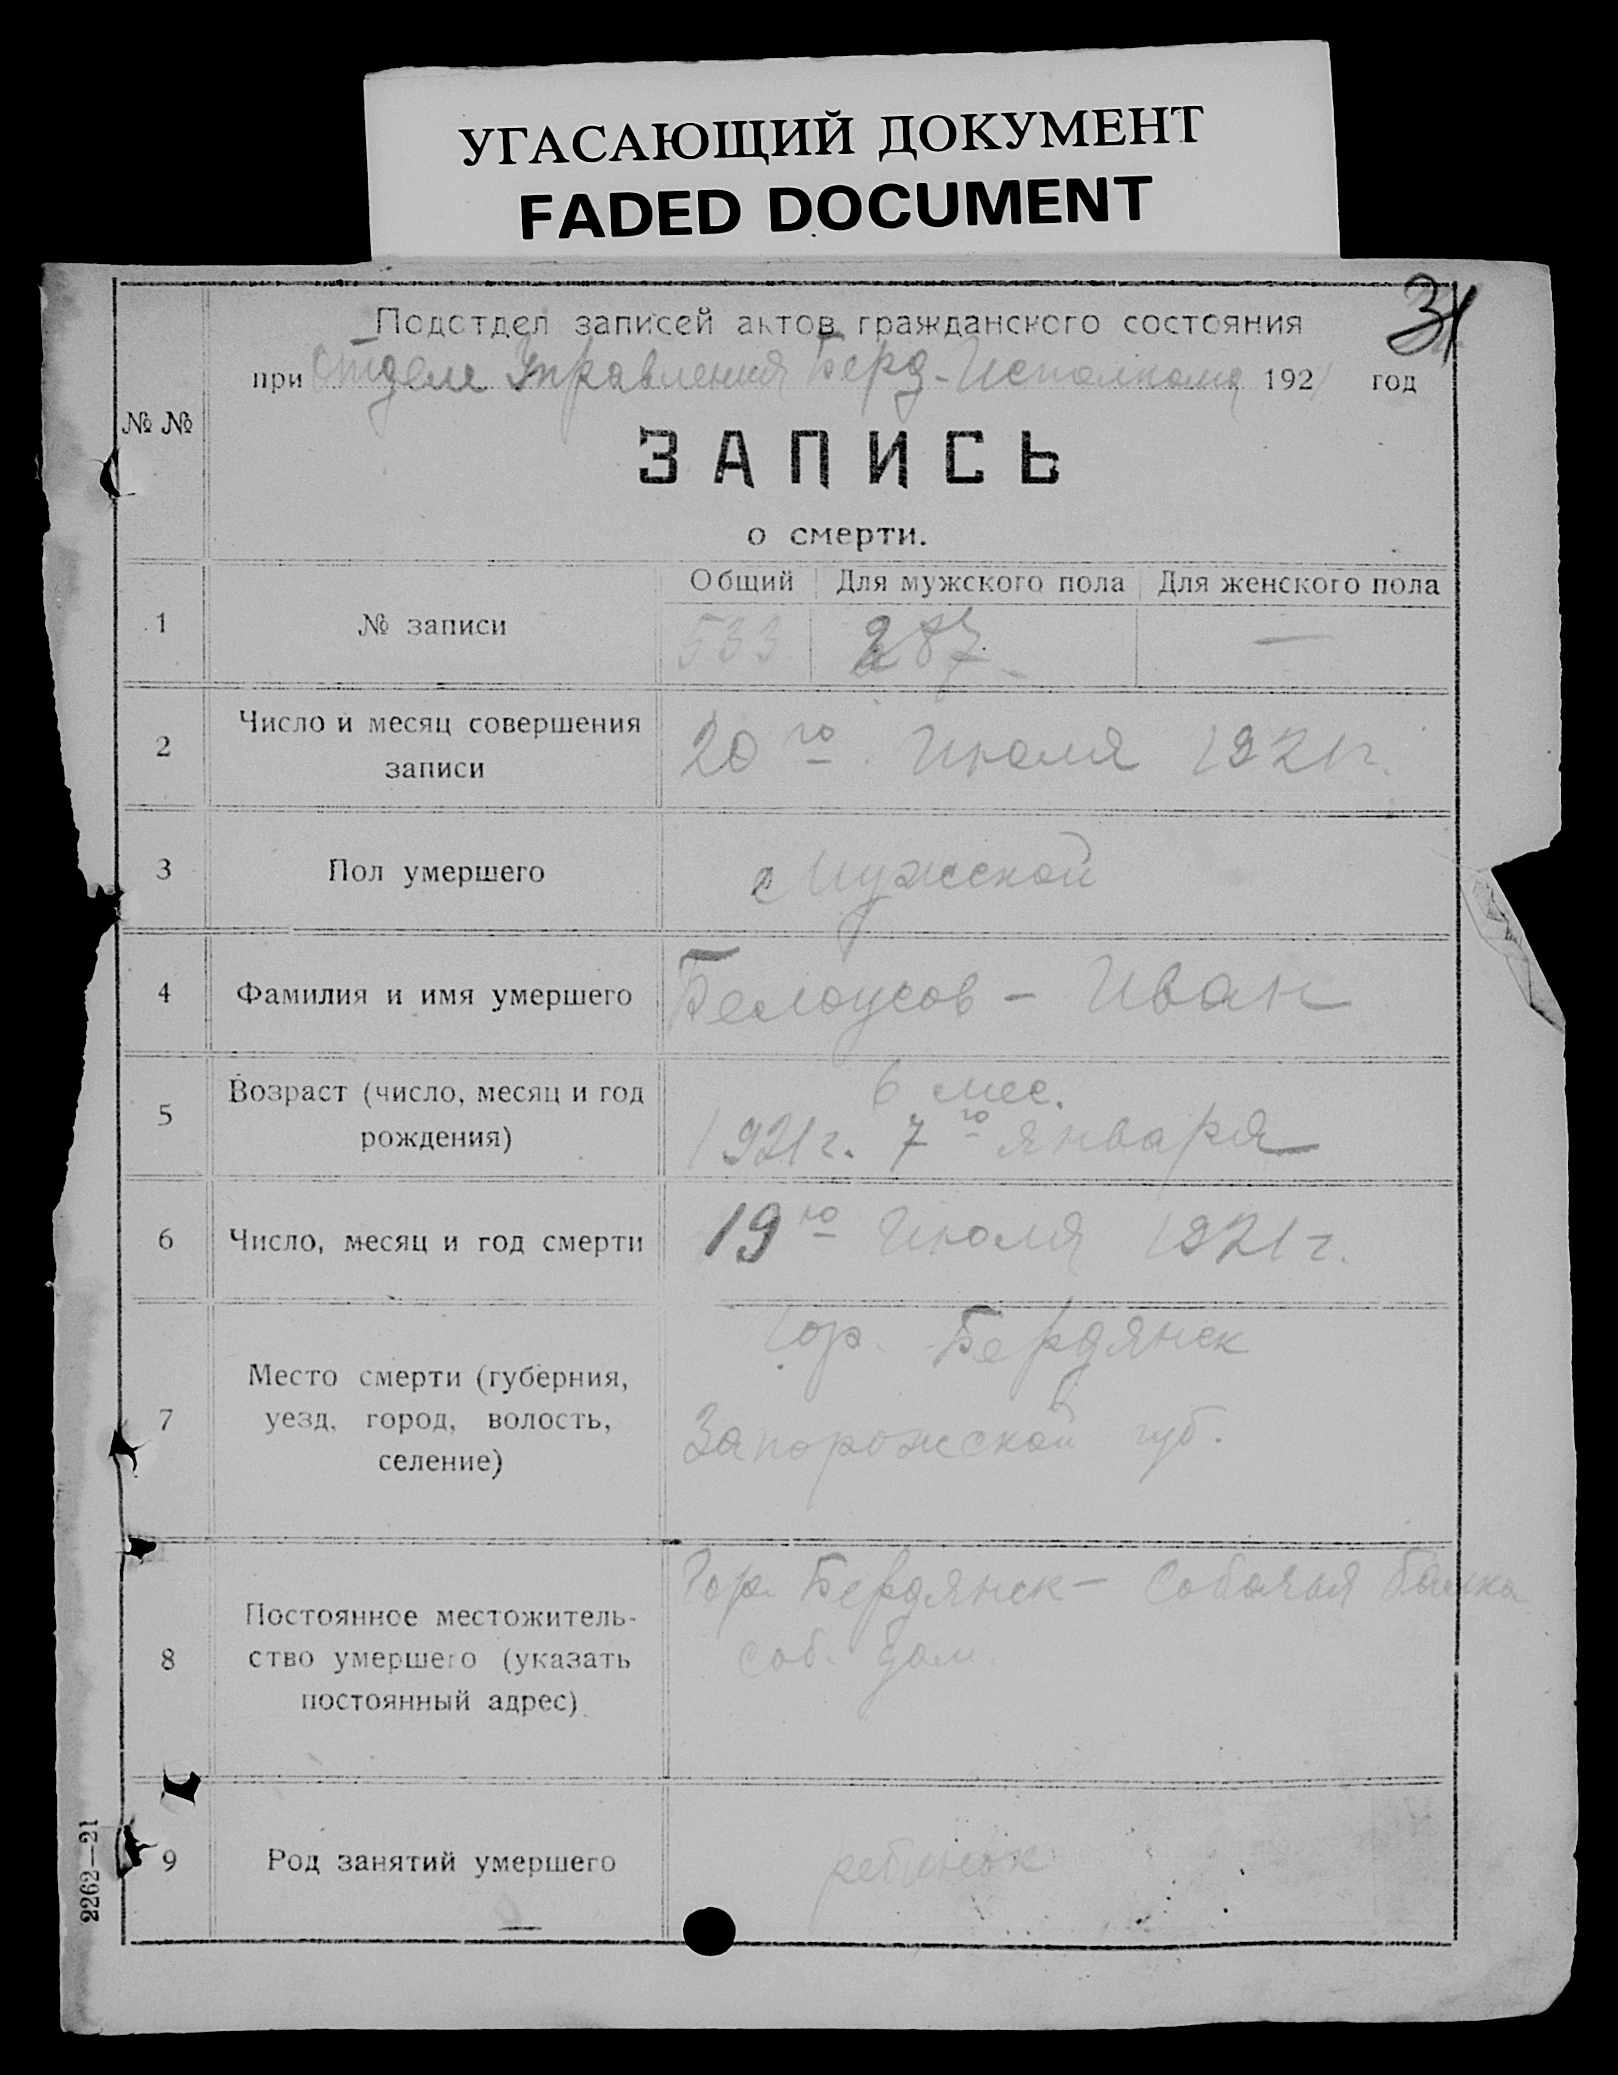 УГАСАЮЩИЙ ДОКУМЕНТ
FADED DOCUMENT
31
Подотдел записей актов гражданского состояния
при Отделе Управления Берд. Исполкома 1921 год
№ №
ЗАПИСЬ
о смерти.
Общий Для мужского пола Для женского пола
1 № записи 533 287 —
2 Число и месяц совершения
записи
20 го Июля 1921 г.
3 Пол умершего Мужской
4 Фамилия и имя умершего Белоусов - Иван
5 Возраст (число, месяц и год
рождения)
6 мес.
1921 г. 7 го января
6 Число, месяц и год смерти 19 го Июля 1921 г.
7 Место смерти (губерния,
уезд, город, волость,
селение)
Гор. Бердянск
Запорожской губ.
8 Постоянное местожитель-
ство умершего (указать
постоянный адрес)
Гор. Бердянск - Собачья балка
соб. дом
9 Род занятий умершего ребенок
2262—21